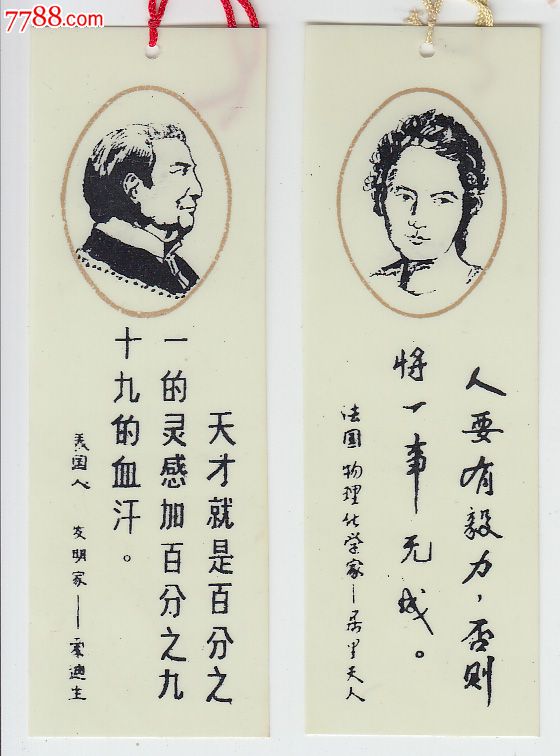 7788.com
天才就是百分之
一的灵感加百分之九
十九的血汗。
美国人 发明家——爱迪生
人要有毅力，否则
将一事无成。
法国物理化学家—居里夫人